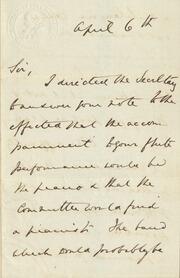 April 6th
Sir,
I directed the Secretary
to answer your note to the
effected that the accom
paniment to your flute
performance would be
the piano & that the
Committee would find
a pianist. The band
which would probably be